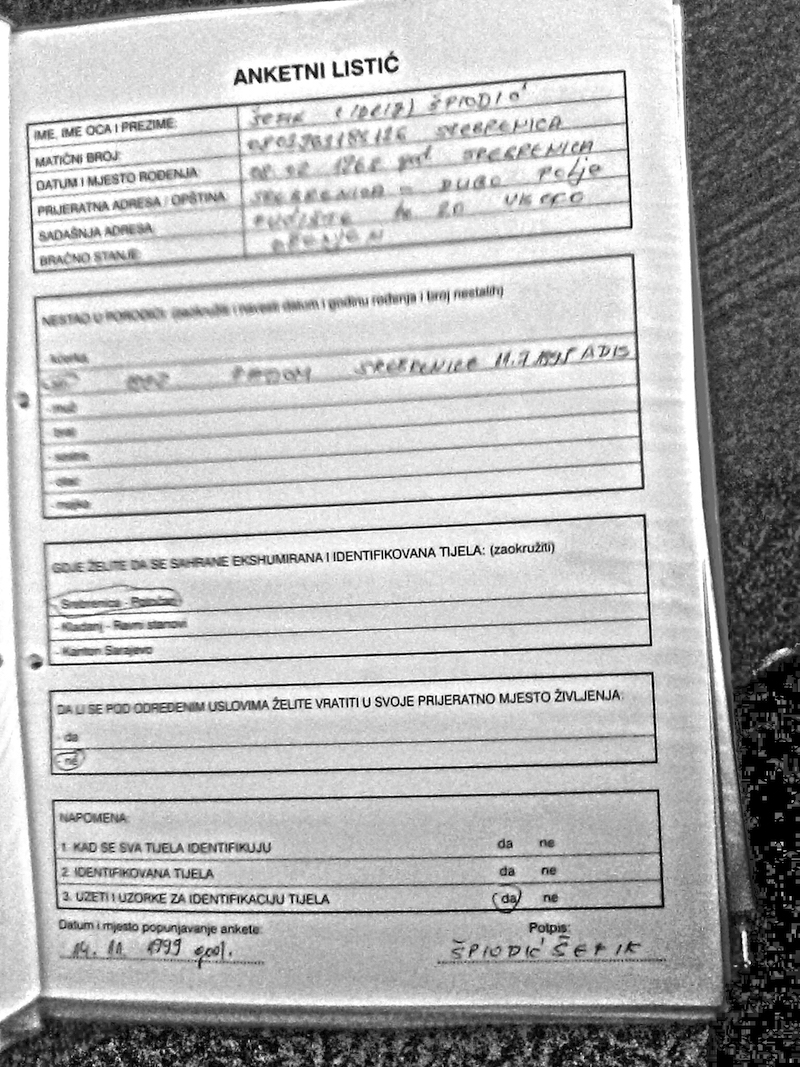 ANKETNI LISTIĆ
IME, IME OCA I PREZIME: ŠEFIK ŠPIODIĆ
MATIČNI BROJ: SREBRENICA
DATUM I MJESTO ROĐENJA: SREBRENICA
PRIJERATNA ADRESA / OPŠTINA: SREBRENICA - DUGO POLJE
SADAŠNJA ADRESA:
BRAČNO STANJE: OŽENJEN
NESTAO U PORODICI: (zaokružiti i navesti datum i godinu rođenja i broj nestalih)
- kćerka
- sin PADOM SREBRENICE 11.7.1995 ADIS
- muž
- brat
- sestra
- otac
- majka
GDJE ŽELITE DA SE SAHRANE EKSHUMIRANA I IDENTIFIKOVANA TIJELA: (zaokružiti)
- Srebrenica - Potočari
- Kladanj - Ravni stanovi
- Kanton Sarajevo
DA LI SE POD ODREĐENIM USLOVIMA ŽELITE VRATITI U SVOJE PRIJERATNO MJESTO ŽIVLJENJA:
- da
- ne
NAPOMENA:
1. KAD SE SVA TIJELA IDENTIFIKUJU da ne
2. IDENTIFIKOVANA TIJELA da ne
3. UZETI UZORKE ZA IDENTIFIKACIJU TIJELA da ne
Datum i mjesto popunjavanje ankete: Potpis:
14. 11. 1999 god. ŠPIODIĆ ŠEFIK